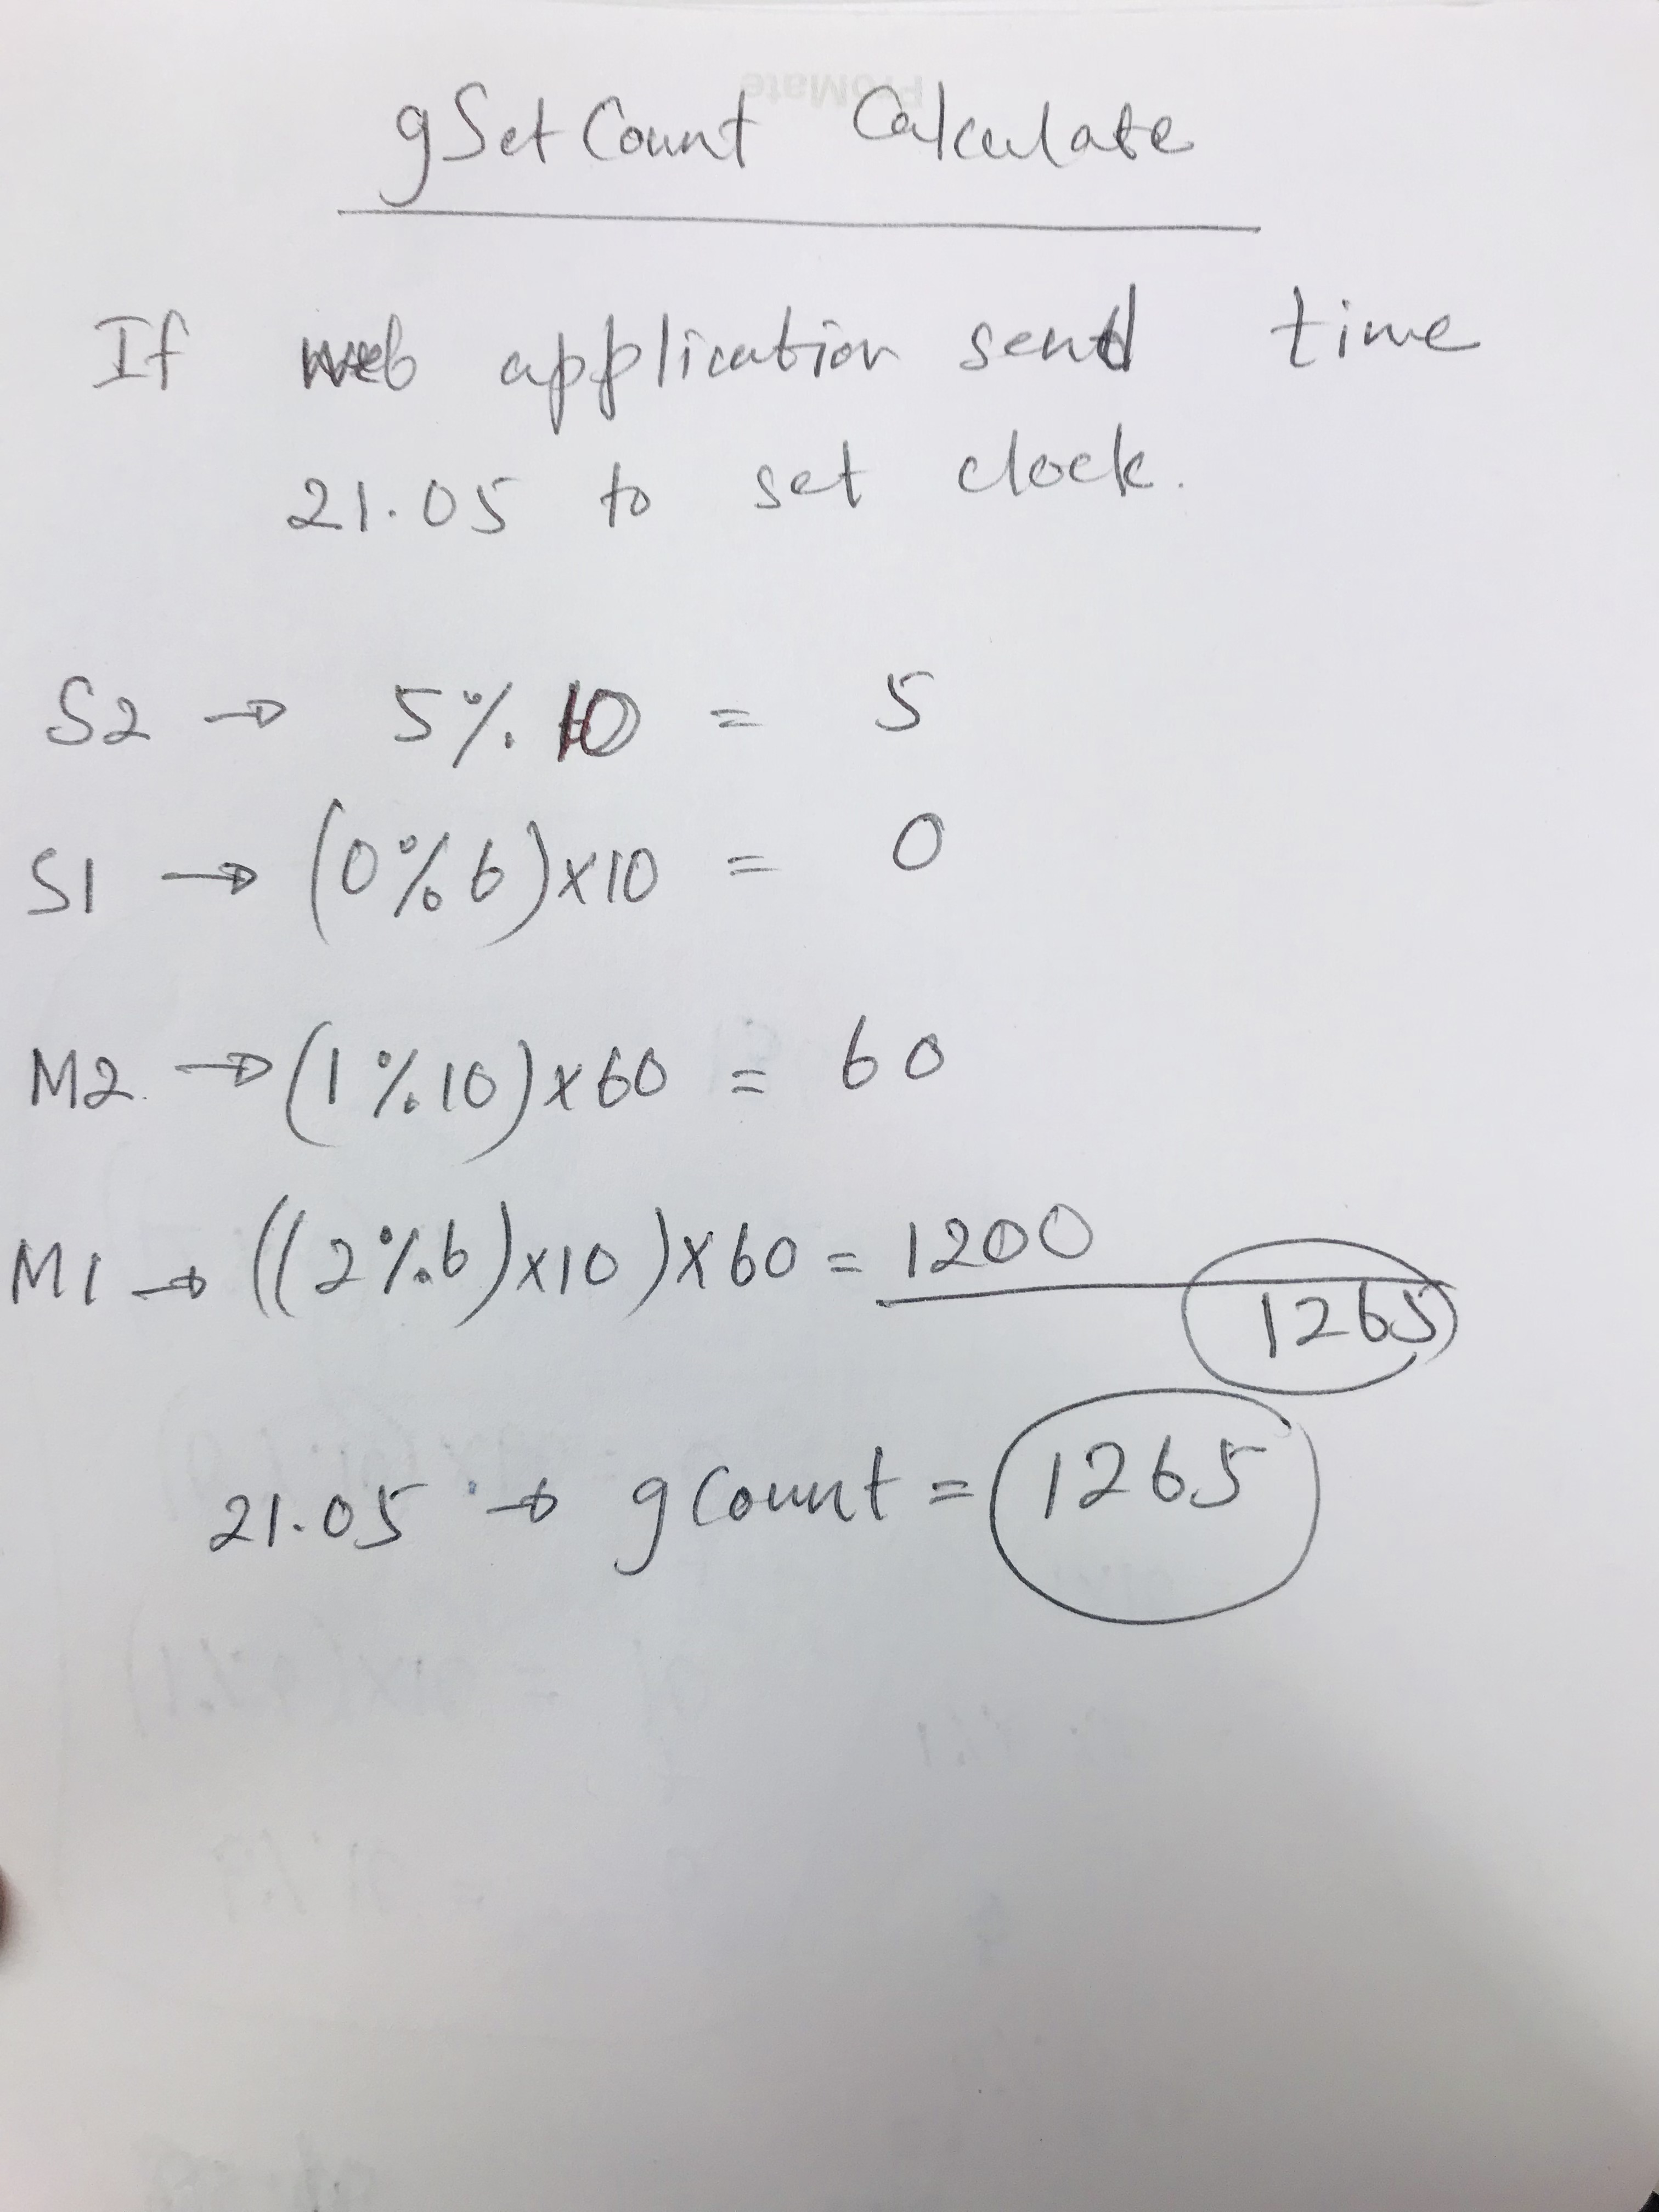 gSetCount Calculate
If web application send time
21.05 to set clock.
S2 → 5 % 10 = 5
S1 → (0 % 6) x 10 = 0
M2 → (1 % 10) x 60 = 60
M1 → ((2 % 6) x 10) x 60 = 1200
1265
21.05 → gCount = 1265